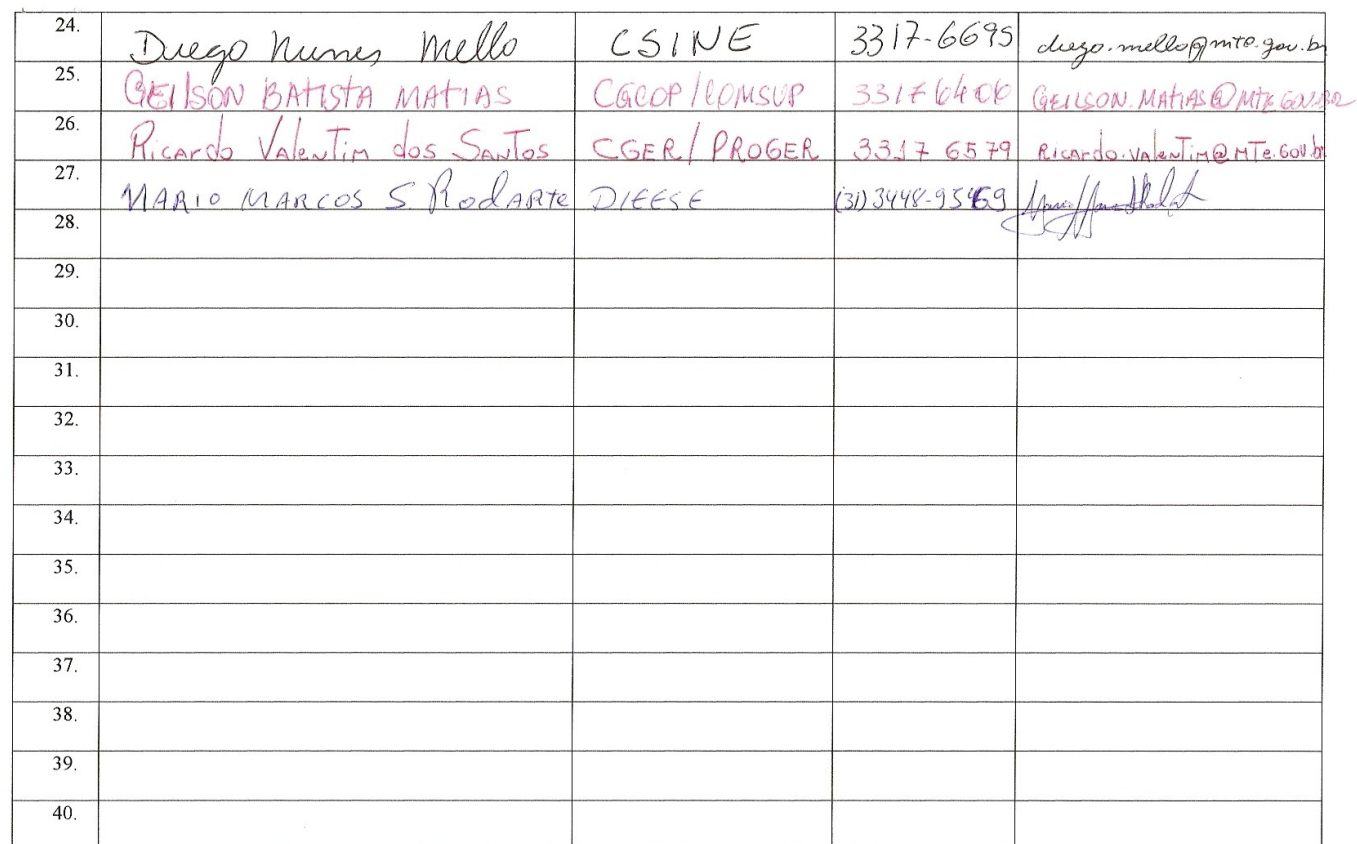 24. Diego Nunes Mello CSINE 3317-6695 diego.mello@mte.gov.br
25. GEILSON BATISTA MATIAS CGCOP/COMSUP 33176406 GEILSON.MATIAS@MTE.GOV.BR
26. Ricardo Valentim dos Santos CGER/PROGER 3317 6579 Ricardo.valentim@MTe.Gov.br
27. MARIO MARCOS S RodARte DIEESE (31)3448-9569
28.
29.
30.
31.
32.
33.
34.
35.
36.
37.
38.
39.
40.